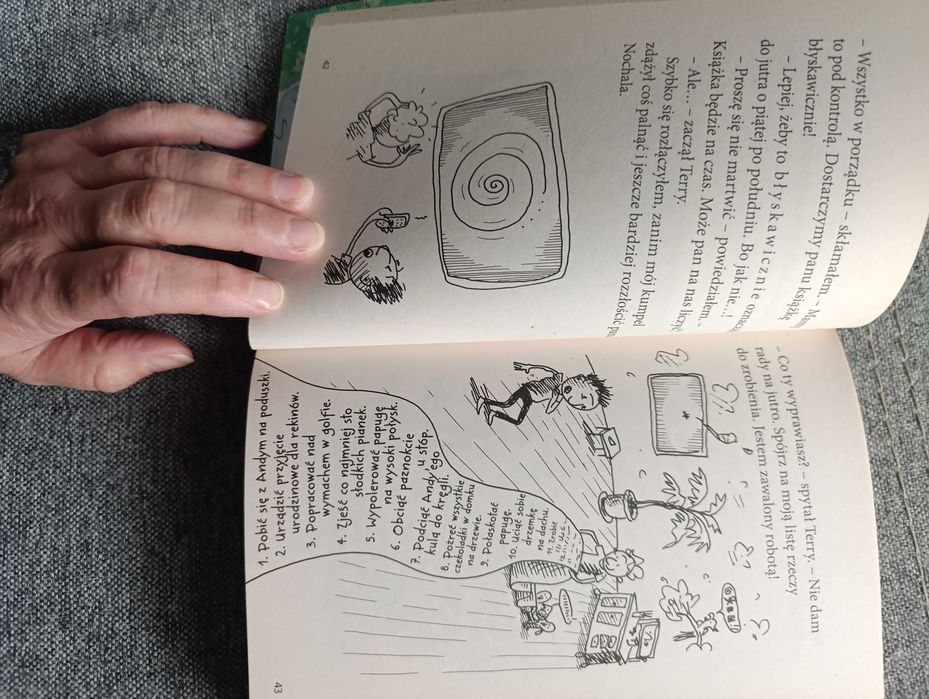 – Wszystko w porządku – skłamałem. –
to pod kontrolą. Dostarczymy panu książkę
błyskawicznie!
– Lepiej, żeby to b ł y s k a w i c z n i e
do jutra o piątej po południu. Bo jak nie...!
– Proszę się nie martwić – powiedziałem. –
Książka będzie na czas. Może pan na nas
– Ale... – zaczął Terry.
Szybko się rozłączyłem, zanim mój kumpel
zdążył coś palnąć i jeszcze bardziej rozzłościć
Nochala.
42
– Co ty wyprawiasz? – spytał Terry. – Nie dam
rady na jutro. Spójrz na moją listę rzeczy
do zrobienia. Jestem zawalony robotą!
1. Pobić się z Andym na poduszki.
2. Urządzić przyjęcie
urodzinowe dla rekinów.
3. Popracować nad
wymachem w golfie.
4. Zjeść co najmniej sto
słodkich pianek.
5. Wypolerować papugę
na wysoki połysk.
6. Obciąć paznokcie
u stóp.
7. Podciąć Andy'ego
kulą do kręgli.
8. Pożreć wszystkie
czekoladki w domku
na drzewie.
9. Połaskotać
papugę.
10. Uciąć sobie
drzemkę
na dachu.
43